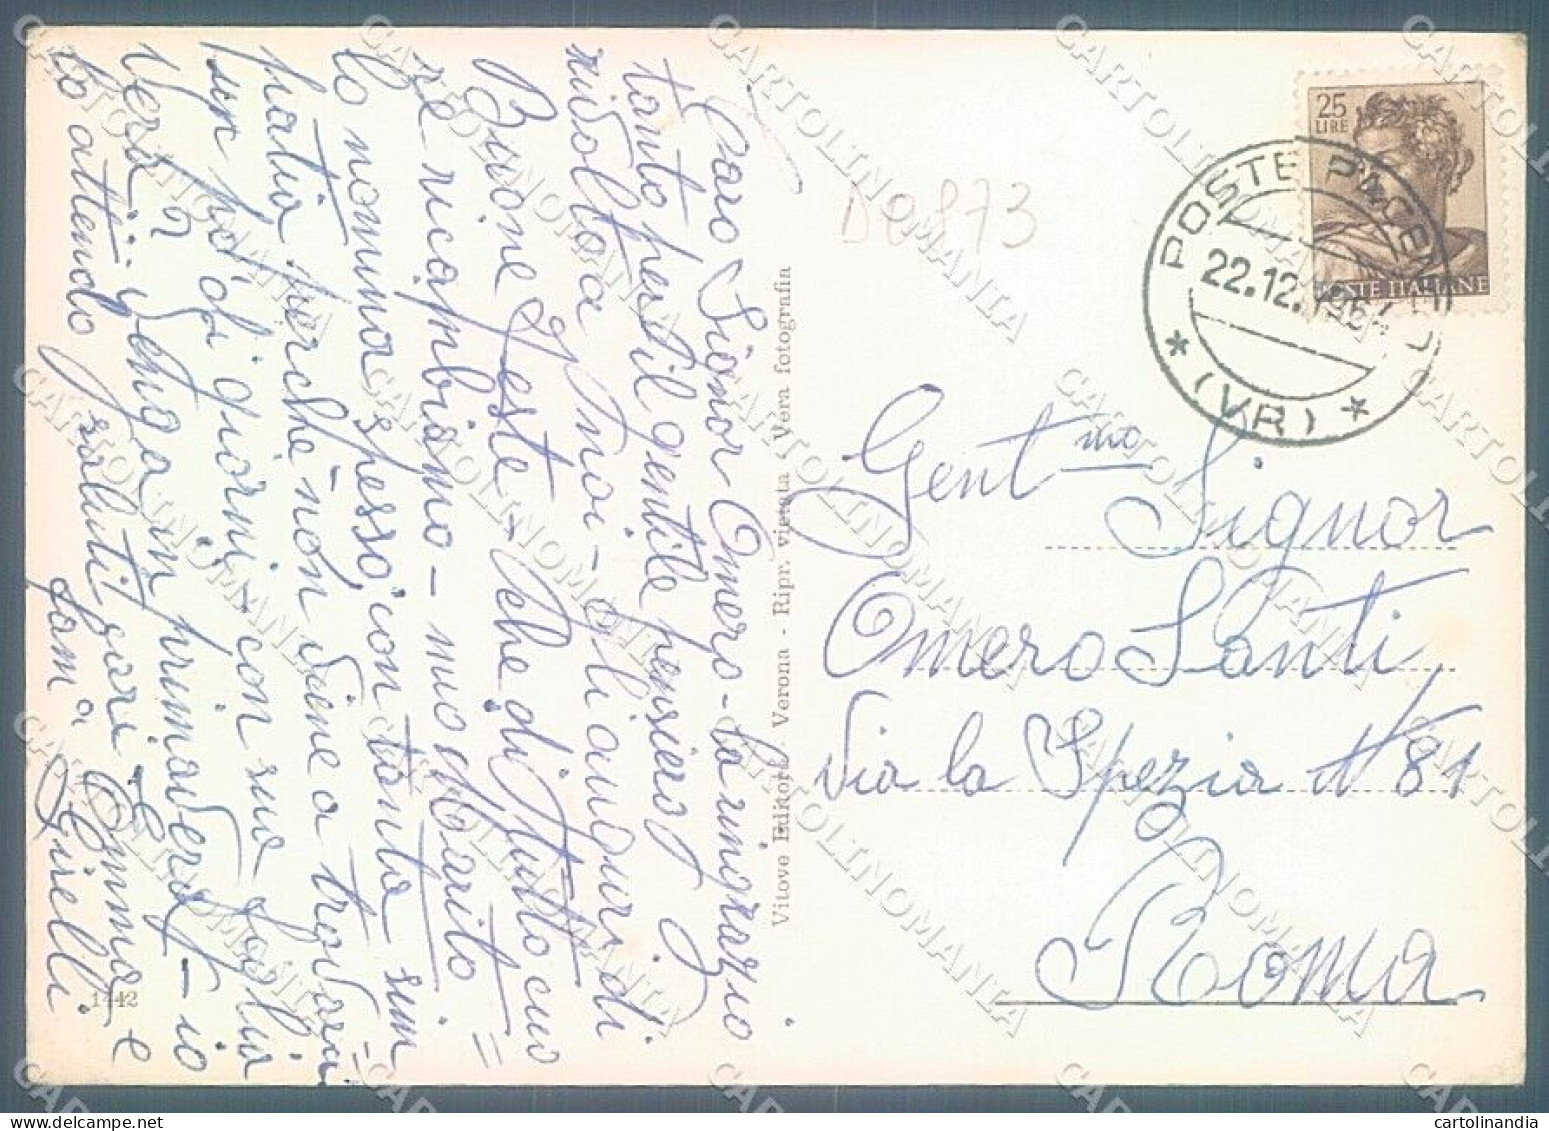 Caro Signor Omero - la ringrazio
tanto per il gentile pensiero
rivolto a noi - gli auguri di
Buone Feste - che di tutto cuo=
re ricambiamo - mio Marito
lo nomina spesso con tanta sim=
patia perchè non viene a trovarci
un pò di giorni - con sua
venga in primavera - io
lo attendo saluti cari Emma e
fam a Giselli.
1442
Vitove Editore, Verona - Ripr. vietata Vera fotografia
D08873
25
LIRE
POSTE ITALIANE
POSTE
22.12.
(VR)
Gent.mo Signor
Omero Santi
Via la Spezia N 81
Roma
CARTOLINOMANIA
cartolinandia